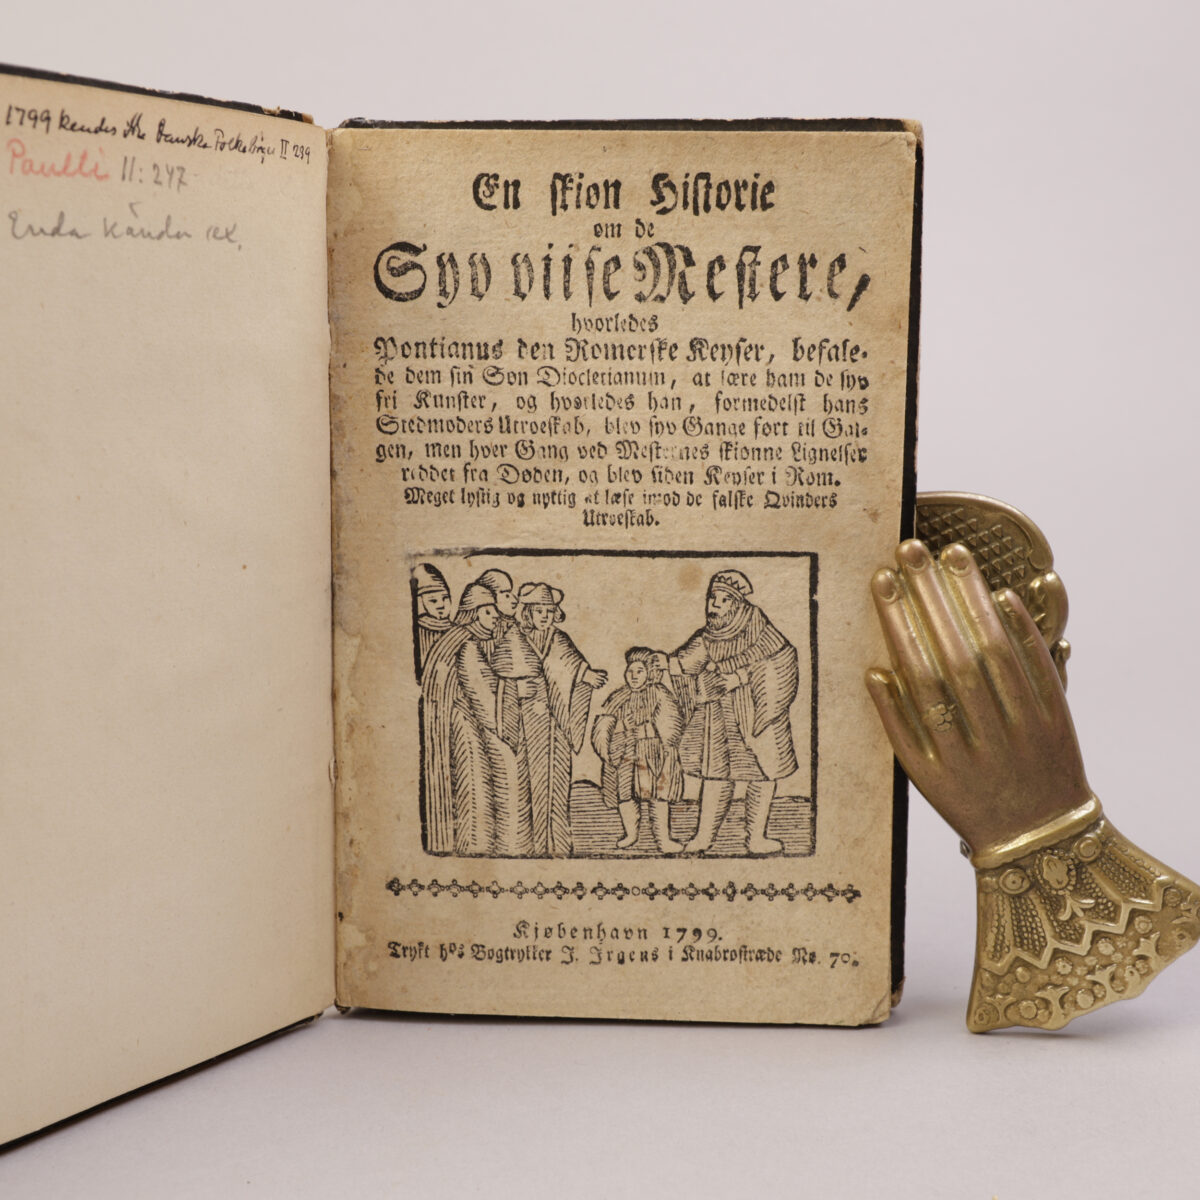 1799 kendes ikke Danske Folkebøger II 239
Paulli II: 247
Enda kända ex.
En skion Historie
om de
Syv viise Mestere,
hvorledes
Pontianus den Romerske Keyser, befale-
de dem sin Søn Diocletianum, at lære ham de syv
fri Kunster, og hvorledes han, formedelst hans
Stedmoders Utroeskab, blev syv Gange fort til Gal-
gen, men hver Gang ved Mesternes skionne Lignelser
reddet fra Døden, og blev siden Keyser i Rom.
Meget lystig og nyttig at læse imod de falske Qvinders
Utroeskab.
Kjøbenhavn 1799.
Trykt hos Bogtrykker J. Jrgens i Knabrostræde No. 70.